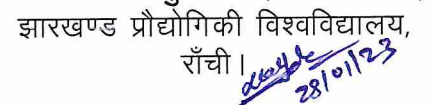 झारखण्ड प्रौद्योगिकी विश्वविद्यालय,
राँची।
28/01/23